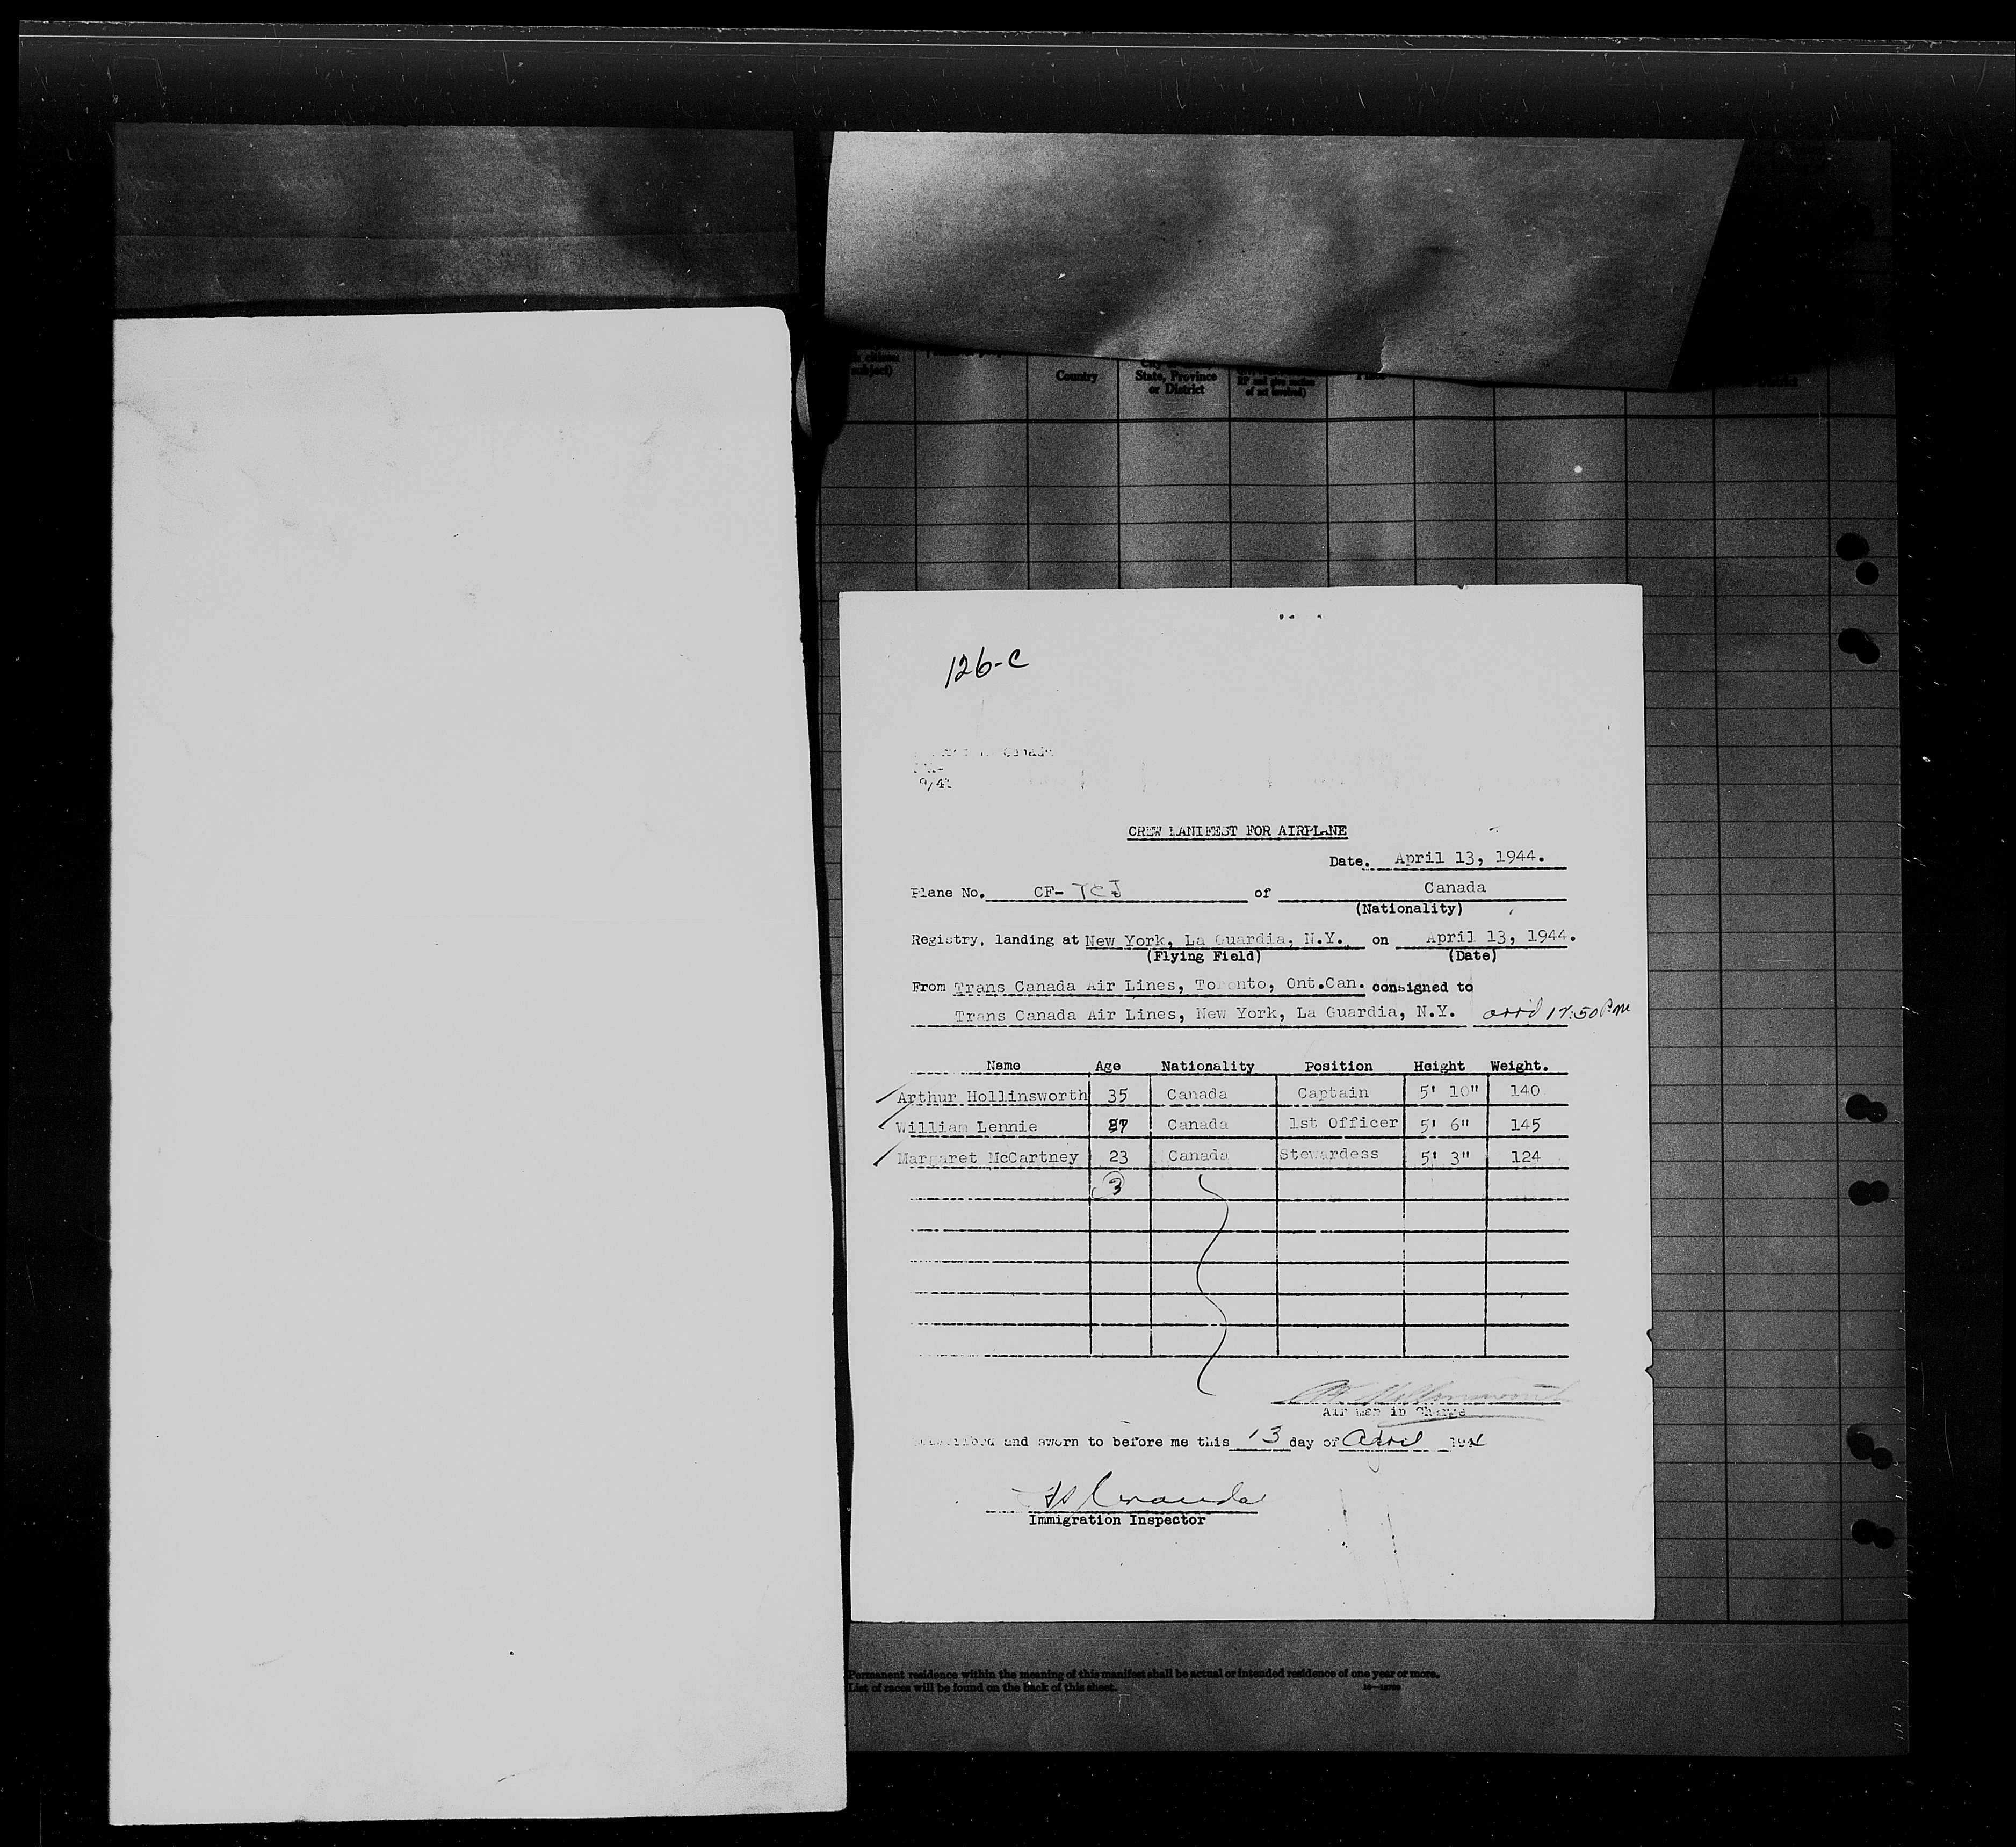 citizen
subject)
Country
State, Province
or District
126-C
Canada
9/43
CREW MANIFEST FOR AIRPLANE
Date. April 13, 1944.
Plane No. CF- TCJ of Canada
(Nationality)
Registry, landing at New York, La Guardia, N.Y. on April 13, 1944.
(Flying Field) (Date)
From Trans Canada Air Lines, Toronto, Ont.Can. consigned to
Trans Canada Air Lines, New York, La Guardia, N.Y. arr'd 12:50 P.m
Name Age Nationality Position Height Weight.
Arthur Hollinsworth 35 Canada Captain 5' 10" 140
William Lennie Canada 1st Officer 5' 6" 145
Margaret McCartney 23 Canada Stewardess 5' 3" 124
3
Air Men in Charge
Subscribed and sworn to before me this 13 day of April 1944
Immigration Inspector
Permanent residence within the meaning of this manifest shall be actual or intended residence of one year or more.
List of races will be found on the back of this sheet.